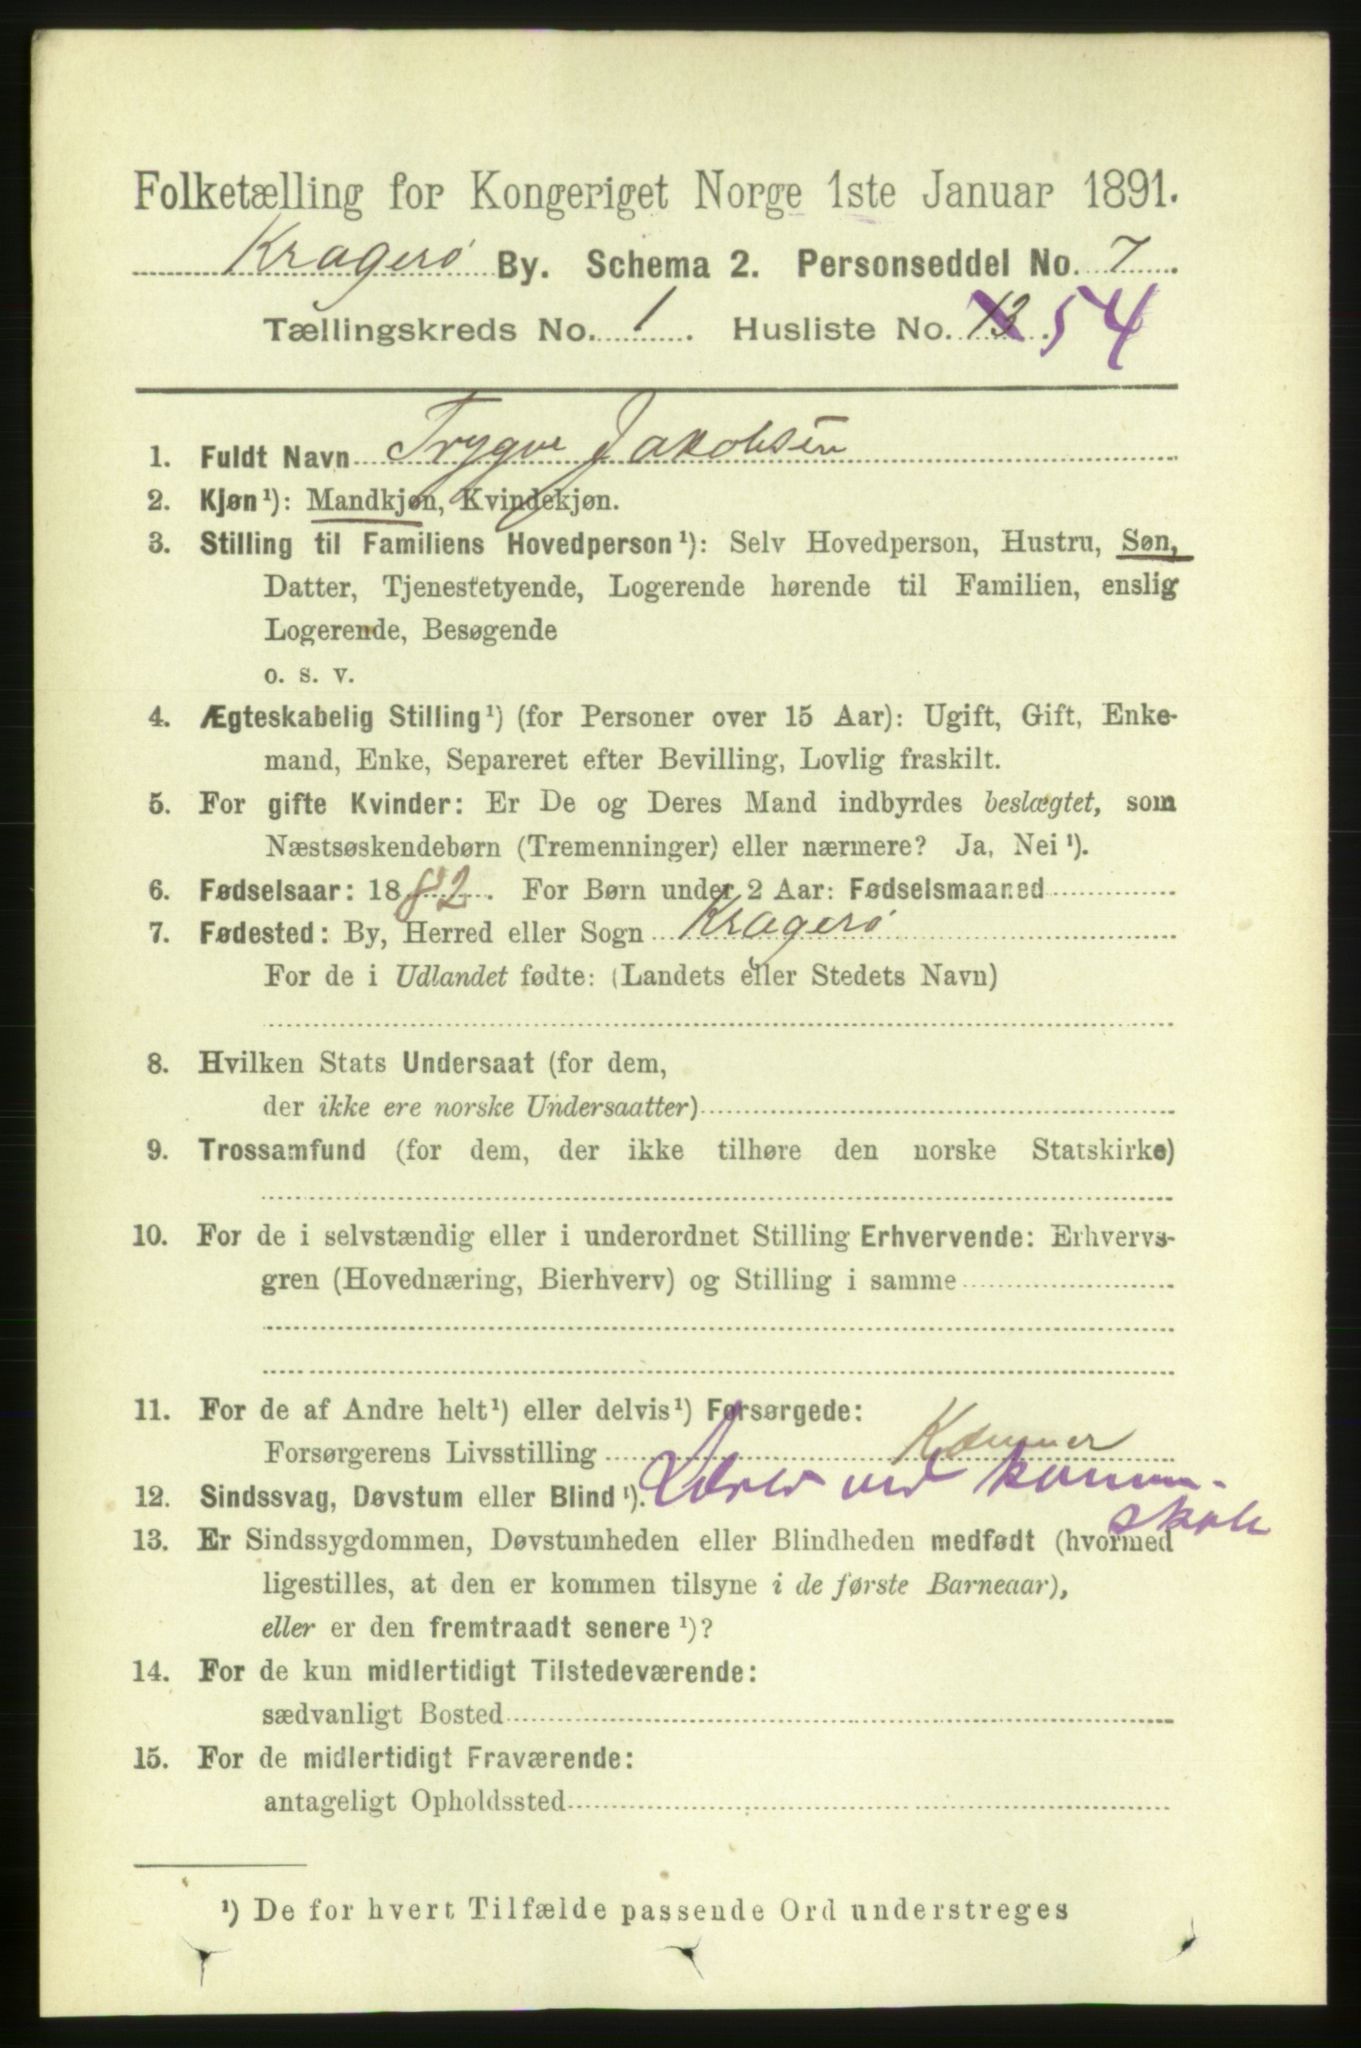 Folketælling for Kongeriget Norge 1ste Januar 1891.
Kragerø By. Schema 2. Personseddel No. 7.
Tællingskreds No. 1. Husliste No. 13. 54
1. Fuldt Navn Trygve Jakobsen
2. Kjøn¹): Mandkjøn, Kvindekjøn.
3. Stilling til Familiens Hovedperson¹): Selv Hovedperson, Hustru, Søn,
Datter, Tjenestetyende, Logerende hørende til Familien, enslig
Logerende, Besøgende
o. s. v.
4. Ægteskabelig Stilling¹) (for Personer over 15 Aar): Ugift, Gift, Enke-
mand, Enke, Separeret efter Bevilling, Lovlig fraskilt.
5. For gifte Kvinder: Er De og Deres Mand indbyrdes beslægtet, som
Næstsøskendebørn (Tremenninger) eller nærmere? Ja, Nei¹).
6. Fødselsaar: 1882. For Børn under 2 Aar: Fødselsmaaned
7. Fødested: By, Herred eller Sogn Kragerø
For de i Udlandet fødte: (Landets eller Stedets Navn)
8. Hvilken Stats Undersaat (for dem,
der ikke ere norske Undersaatter)
9. Trossamfund (for dem, der ikke tilhøre den norske Statskirke)
10. For de i selvstændig eller i underordnet Stilling Erhvervende: Erhvervs-
gren (Hovednæring, Bierhverv) og Stilling i samme
11. For de af Andre helt¹) eller delvis¹) Forsørgede:
Forsørgerens Livsstilling Kæmner
12. Sindssvag, Døvstum eller Blind¹). Lærer ved komm.
skole
13. Er Sindssygdommen, Døvstumheden eller Blindheden medfødt (hvormed
ligestilles, at den er kommen tilsyne i de første Barneaar),
eller er den fremtraadt senere¹)?
14. For de kun midlertidigt Tilstedeværende:
sædvanligt Bosted
15. For de midlertidigt Fraværende:
antageligt Opholdssted
¹) De for hvert Tilfælde passende Ord understreges